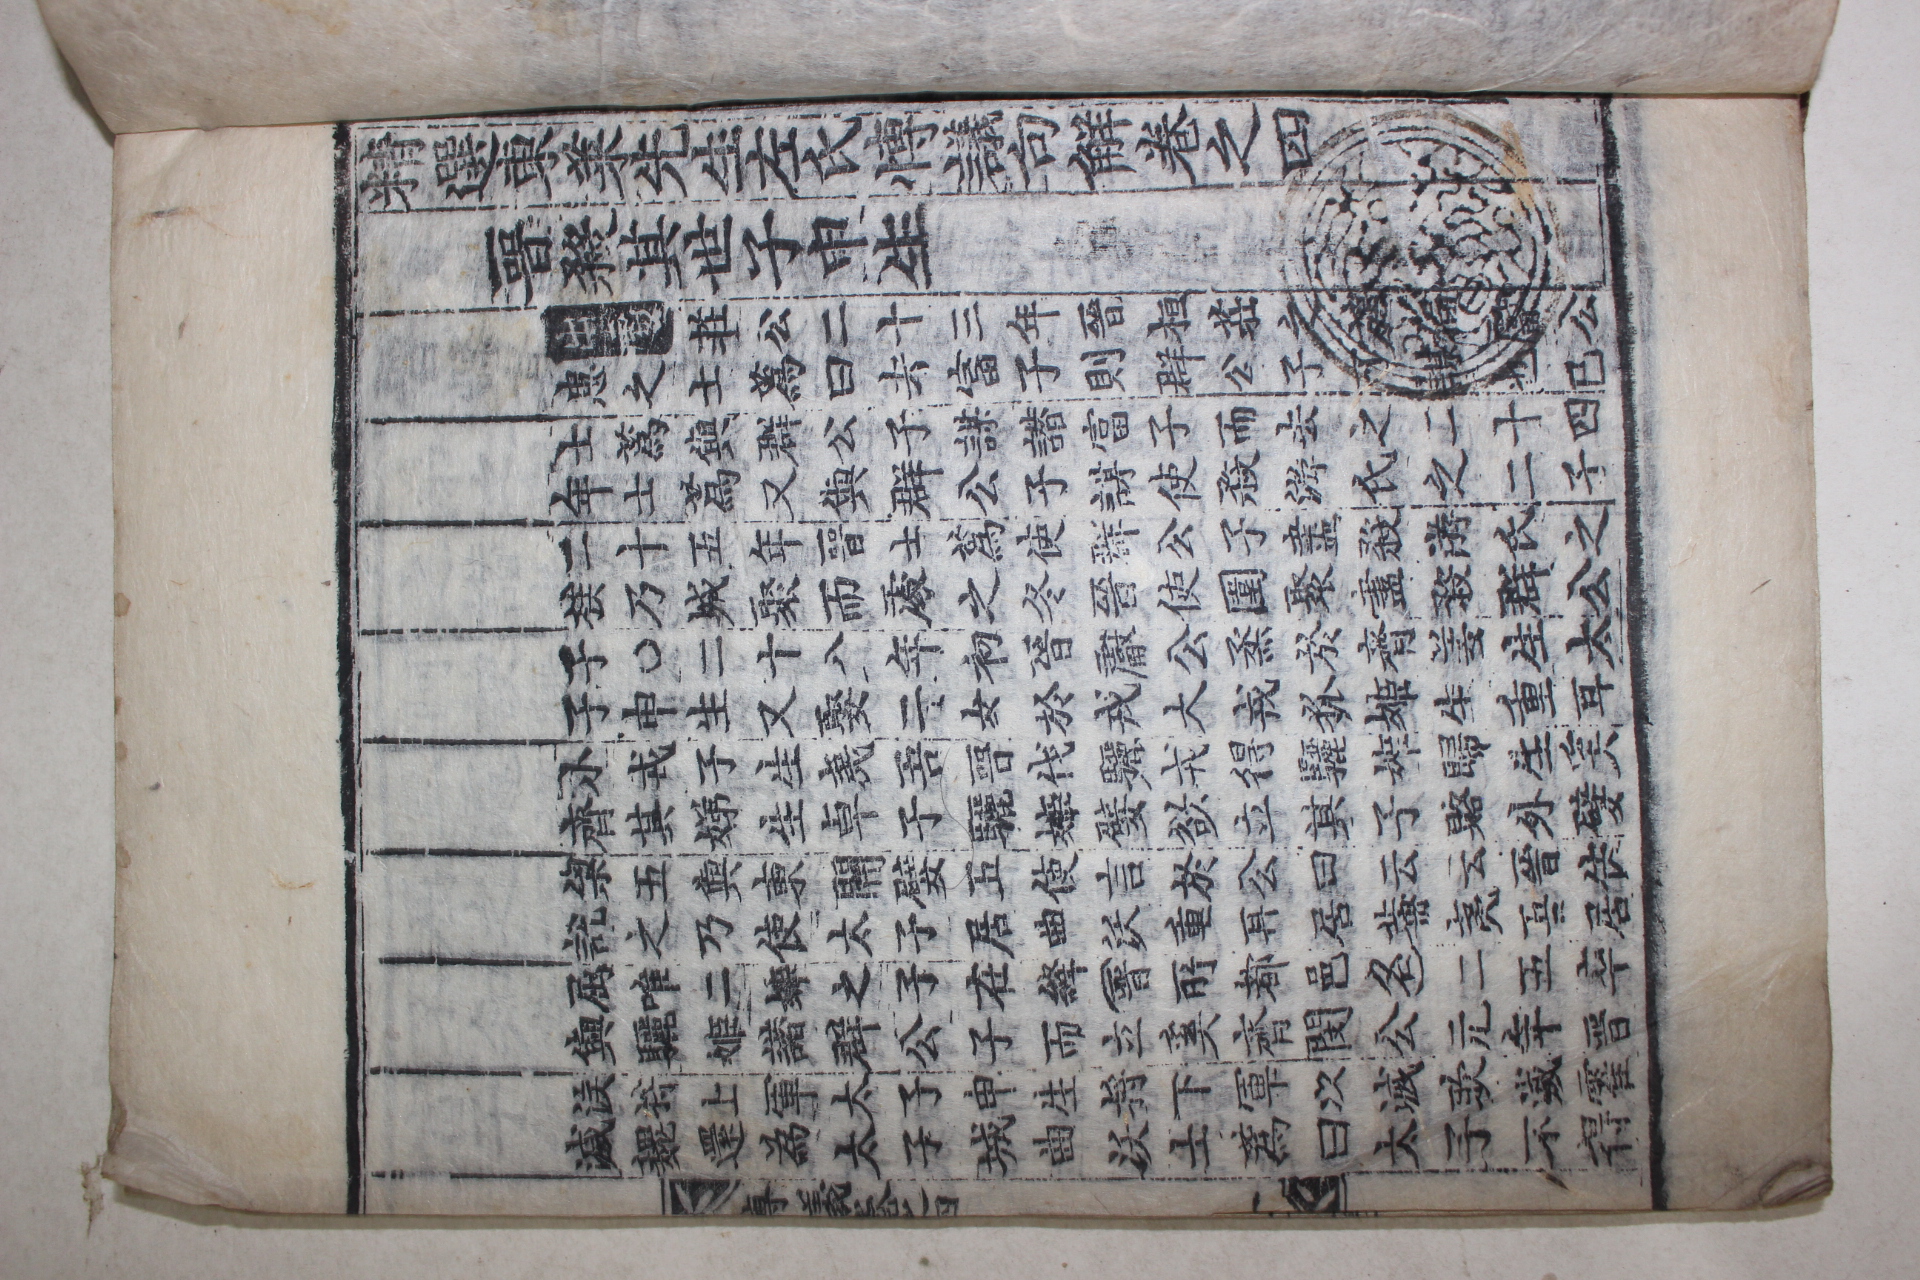 精選東萊先生左氏博議句解卷之四
晉殺其世子申生
出處莊公二十三年晉桓莊之族偪獻公
患之士蔿曰去富子則群公子可謀也已
士蔿與群公子謀譖富子而去之二十四
年士蔿又與群公子謀使殺游氏之二子
二十五年晉士蔿使群公子盡殺游氏之
族乃城聚而處之冬晉使圍聚盡殺群公
子〇二十八年初晉獻公烝於齊姜生太
子申生又娶二女於戎大戎狐姬生重耳
小戎子生夷吾晉伐驪戎得驪姬歸生奚
齊其娣生卓子驪姬嬖欲立其子賂外嬖
梁五與東關嬖五使言於公曰云云晉侯
說之乃使太子居曲沃重耳居蒲夷五居
屈唯二姬之子在絳晉所都邑名二五卒
與驪姬譖群公子而立奚齊閔公元年晉
侯將上軍太子申生將下軍次滅耿滅霍
滅魏還為太子城曲沃士蔿曰太子不得
卷之四